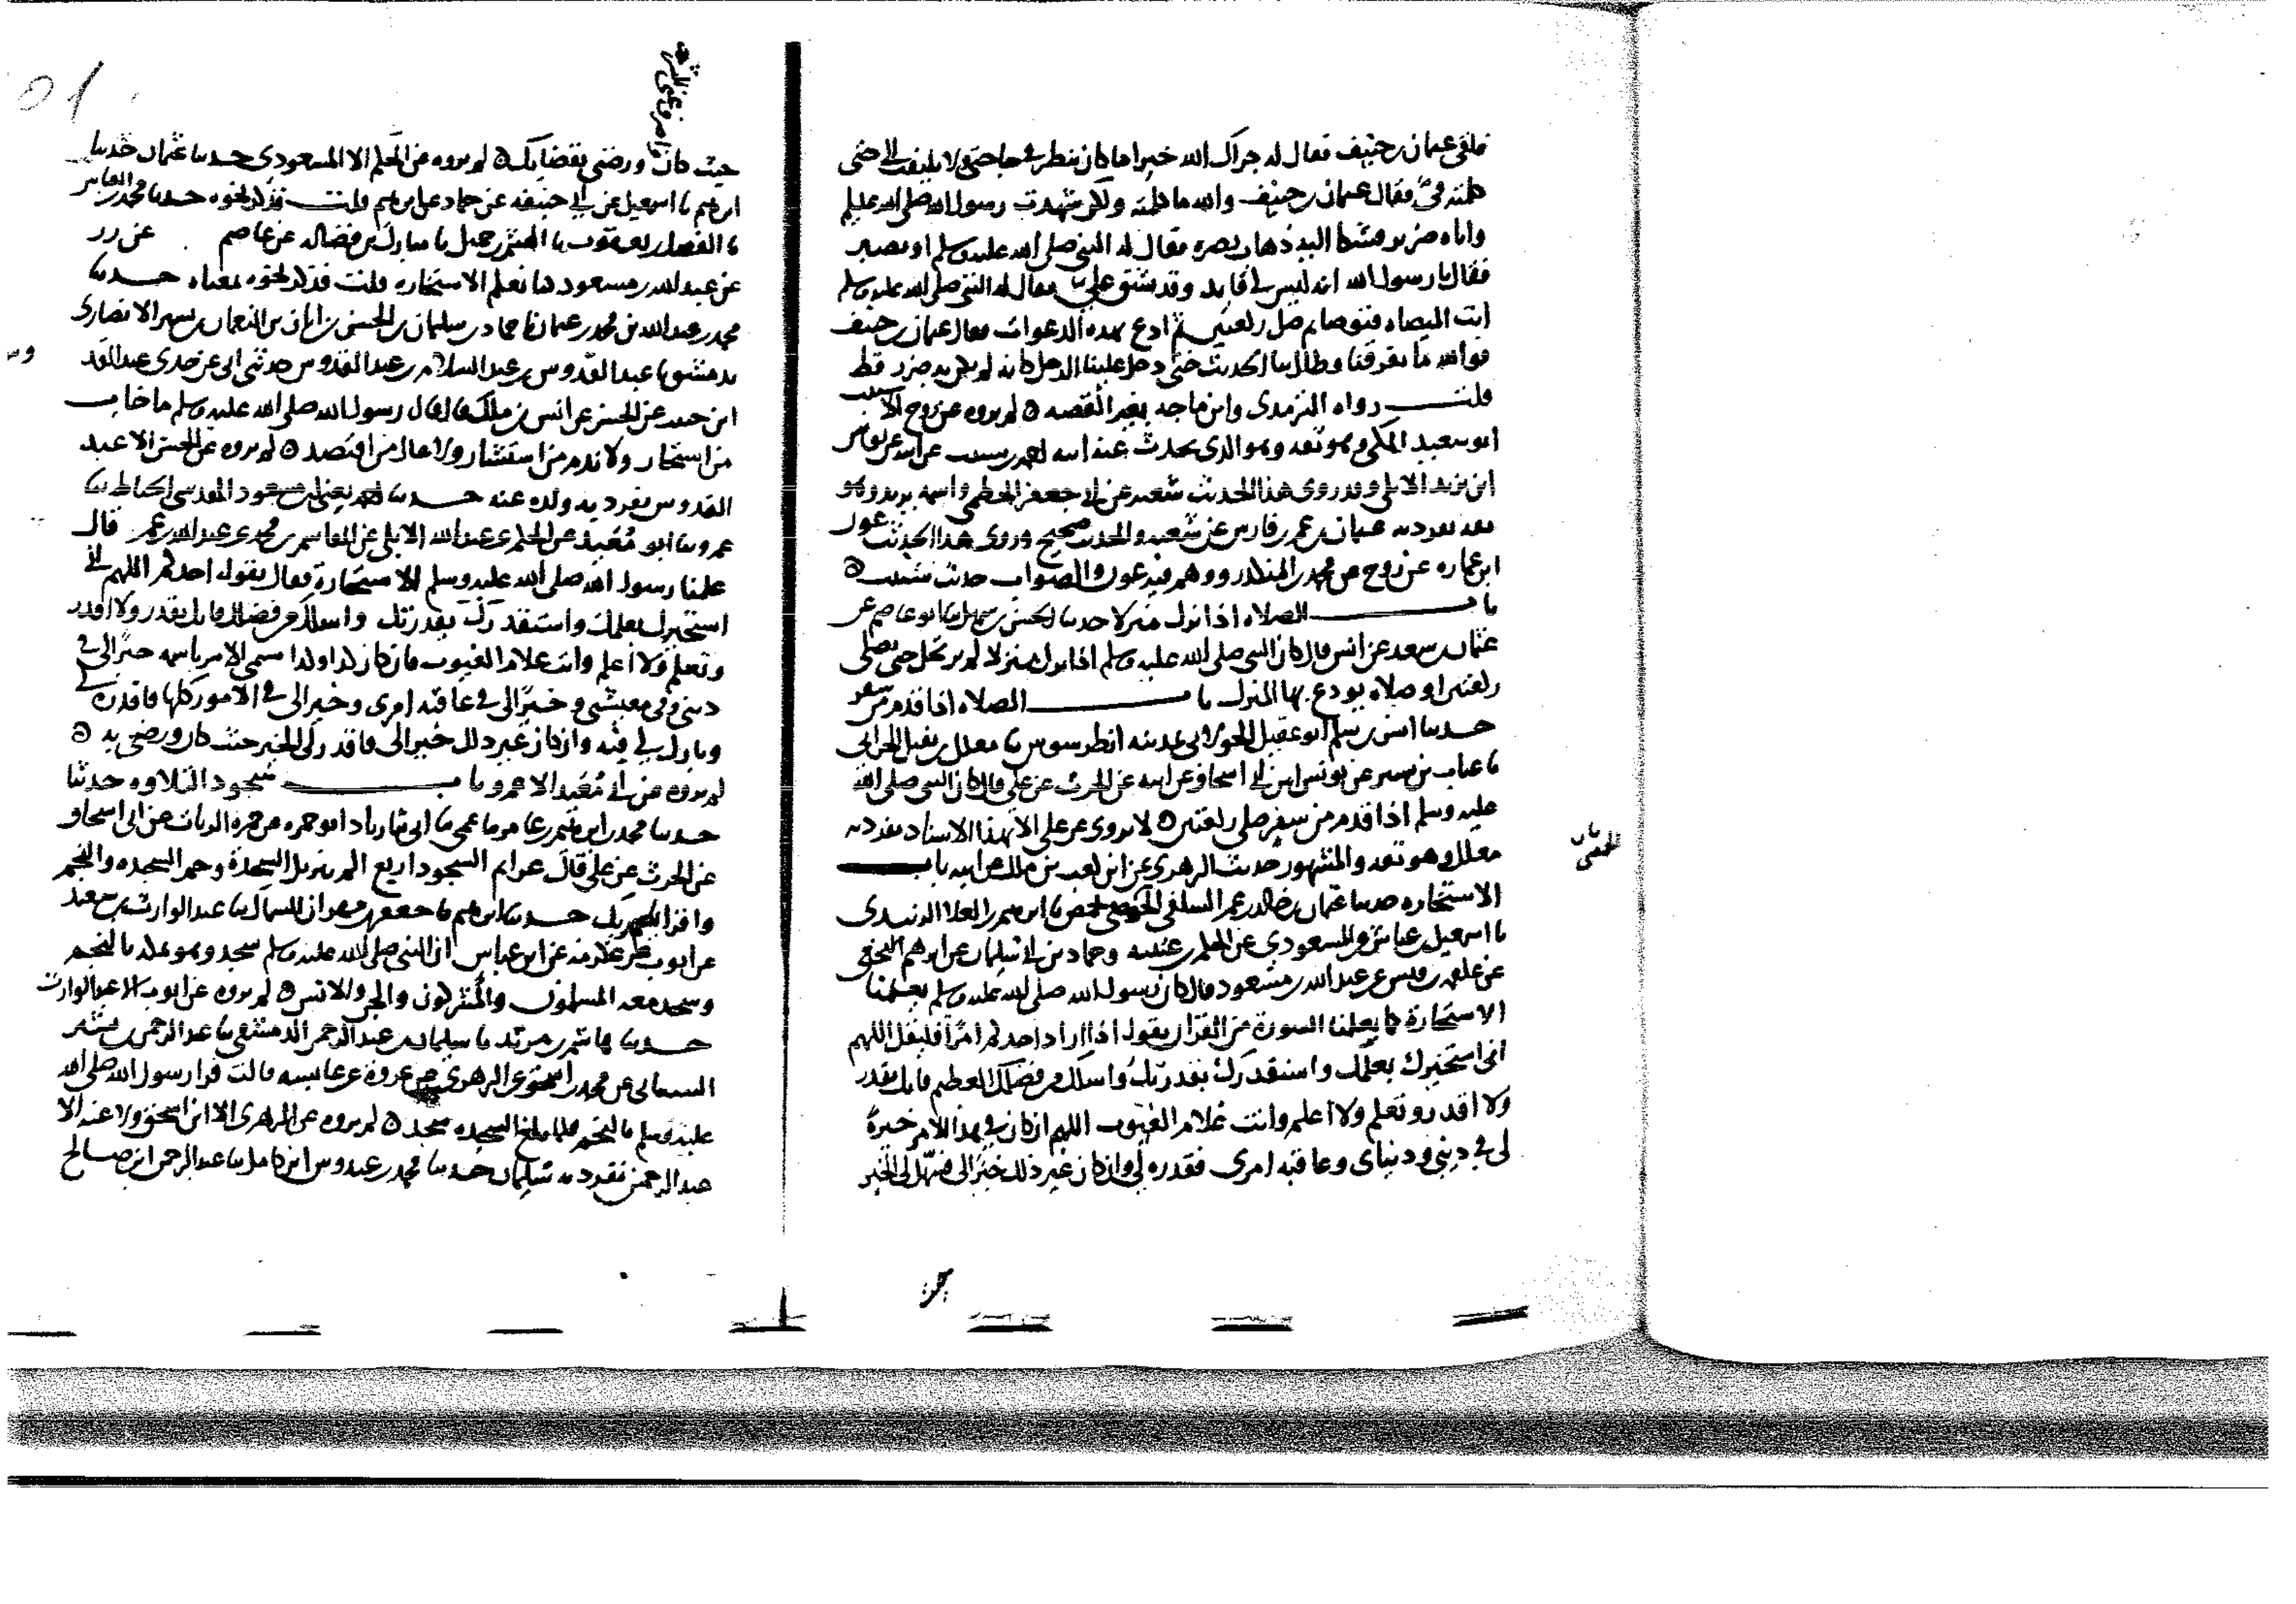 فلقى عثمان بن حنيف فقال له جزاك الله خيرا ما كان ينظر في حاجتي ولا يلتفت الي حتى
كلمته في فقال عثمان بن حنيف والله ما كلمته ولكن شهدت رسول الله صلى الله عليه وسلم
واتاه ضرير فشكا اليه ذهاب بصره فقال له النبي صلى الله عليه وسلم او تصبر
فقال يا رسول الله انه ليس لي قايد وقد شق علي فقال له النبي صلى الله عليه وسلم
ايت الميضاه فتوضا ثم صل ركعتين ثم ادع بهذه الدعوات فقال عثمان بن حنيف
فوالله ما تفرقنا وطال بنا الحديث حتى دخل علينا الرجل كانه لم يكن به ضرر قط
قلت رواه الترمذي وابن ماجه بغير القصه لم يروه عن روح الا شبيب
ابو سعيد المكي وهو ثقه وهو الذي يحدث عنه ابنه احمد بن شبيب عن ابيه عن يونس
ابن يزيد الايلي وقد روى هذا الحديث شعبه عن ابي جعفر الخطمي واسمه عمير بن يزيد وهو
ثقه تفرد به عثمان بن عمر بن فارس عن شعبه والحديث صحيح وروى هذا الحديث عون
ابن عماره عن روح عن محمد بن المنكدر ووهم فيه عون والصواب حديث شبيب
باب الصلاه اذا نزل منزلا حدثنا الحسن بن سهل ثنا ابو عاصم عن
عثمان بن سعد عن انس قال كان النبي صلى الله عليه وسلم اذا نزل منزلا لم يرتحل حتى يصلي
ركعتين او صلاه يودع بها المنزل باب الصلاه اذا قدم من سفر
حدثنا انس بن سلم ابو عقيل الخولاني بمدينه انطرسوس ثنا معلل بن نفيل الحراني
ثنا عتاب بن بشير عن يونس بن ابي اسحاق عن ابيه عن الحرث عن علي قال كان النبي صلى الله
عليه وسلم اذا قدم من سفر صلى ركعتين لا يروى عن علي الا بهذا الاسناد تفرد به
معلل وهو ثقه والمشهور حديث الزهري عن ابن كعب بن ملك عن ابيه باب
الاستخاره حدثنا عثمان بن خالد بن عمر السلفي الحمصي بحمص ثنا ابرهيم بن العلا الزبيدي
ثنا اسمعيل بن عياش عن المسعودي عن الحكم بن عتيبه وحماد بن ابي سليمان عن ابرهيم النخعي
عن علقمه بن قيس عن عبد الله بن مسعود قال كان رسول الله صلى الله عليه وسلم يعلمنا
الاستخارة كما يعلمنا السورة من القران يقول اذا اراد احدكم امرا فليقل اللهم
اني استخيرك بعلمك واستقدرك بقدرتك واسالك من فضلك العظيم فانك تقدر
ولا اقدر وتعلم ولا اعلم وانت علام الغيوب اللهم ان كان في هذا الامر خيرة
لي في ديني ودنياي وعاقبه امري فقدره لي وان كان غير ذلك خيرا لي فسهل لي الخير
حيث كان ورضني بقضايك لم يروه عن الحكم الا المسعودي حدثنا عثمان حدثنا
ابرهيم ثنا اسمعيل عن ابي حنيفه عن حماد عن ابرهيم قلت فذكر نحوه حدثنا محمد بن العباس
ثنا الفضل بن يعقوب ثنا الهيثم بن جميل ثنا مبارك بن فضاله عن عاصم عن زر
عن عبد الله بن مسعود كنا نعلم الاستخاره قلت فذكر نحوه معناه حدثنا
محمد بن عبد الله بن محمد بن عثمان بن حماد بن سليمان بن الحسن بن ابان بن النعمان بن بشير الانصاري
بدمشق ثنا عبد القدوس بن عبد السلام بن عبد القدوس حدثني ابي عن جدي عبد القدوس
ابن حبيب عن الحسن عن انس بن ملك قال قال رسول الله صلى الله عليه وسلم ما خاب
من استخار ولا ندم من استشار ولا عال من اقتصد لم يروه عن الحسن الا عبد
القدوس تفرد به ولده عنه حدثنا احمد يعني ابن مسعود المقدسي الخياط ثنا
عمرو ثنا ابو مُعَيد عن الحكم بن عبد الله الايلي عن القاسم بن محمد عن عبد الله بن عمر قال
علمنا رسول الله صلى الله عليه وسلم الاستخارة فقال يقول احدكم اللهم اني
استخيرك بعلمك واستقدرك بقدرتك واسالك من فضلك فانك تقدر ولا اقدر
وتعلم ولا اعلم وانت علام الغيوب فان كان كذا وكذا سمي الامر باسمه خيرا لي في
ديني وفي معيشتي وخيرا لي في عاقبه امري وخيرا لي في الامور كلها فاقدره لي
وبارك لي فيه وان كان غير ذلك خيرا لي فاقدر لي الخير حيث كان ورضني به
لم يروه عن ابي مُعَيد الا عمرو باب سجود التلاوه حدثنا
حدثنا محمد بن ابرهيم بن عامر ثنا عمي ثنا ابي ثنا زياد ابو حمزه عن حمزه الزيات عن ابي اسحاق
عن الحرث عن علي قال عزايم السجود اربع الم تنزيل السجدة وحم السجده والنجم
واقرا باسم ربك حدثنا ابرهيم ثنا جعفر بن مهران السماك ثنا عبد الوارث بن سعيد
عن ايوب عن عكرمه عن ابن عباس ان النبي صلى الله عليه وسلم سجد وهو بمكه بالنجم
وسجد معه المسلمون والمشركون والجن والانس لم يروه عن ايوب الا عبد الوارث
حدثنا هاشم بن مرثد ثنا سليمان بن عبد الرحمن الدمشقي ثنا عبد الرحمن بن بشير
الشيباني عن محمد بن اسحق عن الزهري عن عروة عن عايشه قالت قرا رسول الله صلى الله
عليه وسلم بالنجم فلما بلغ السجده سجد لم يروه عن الزهري الا ابن اسحق ولا عنه الا
عبد الرحمن تفرد به سليمان حدثنا محمد بن عبدوس ابن كامل ثنا عبد الرحمن ابن صالح